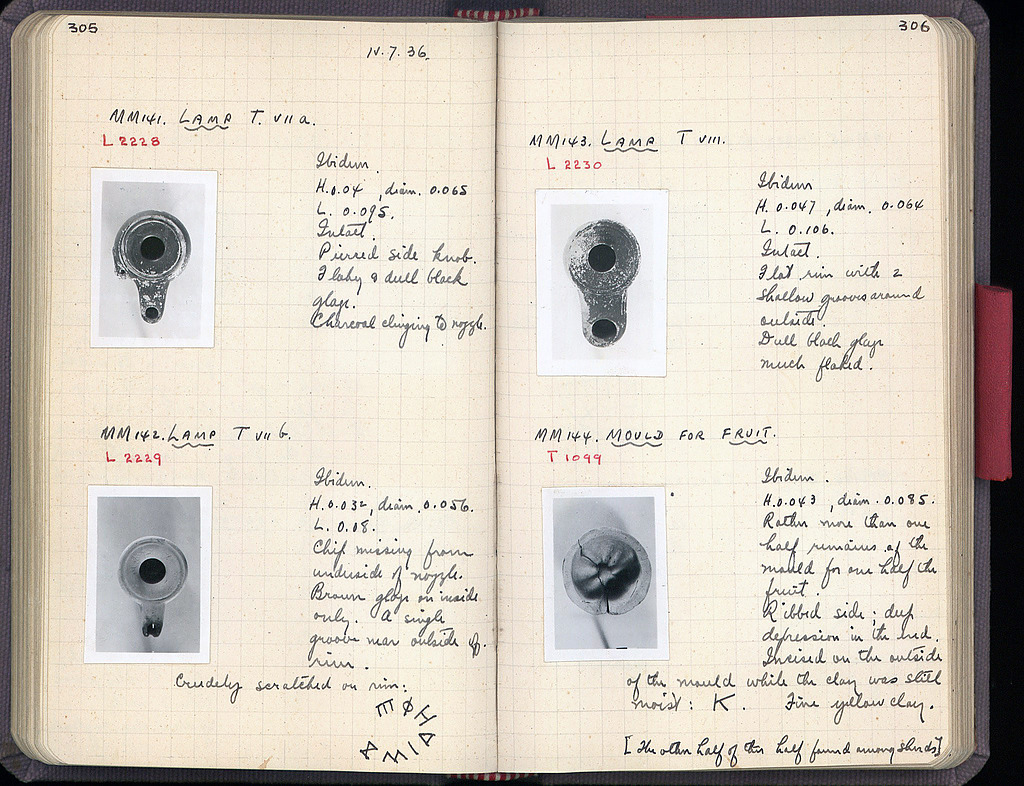 305
IV. 7. 36.
MM141. LAMP T. VII a.
L 2228
Ibidem.
H. 0.04, diam. 0.065
L. 0.095.
Intact.
Pierced side knob.
Flaky & dull black
glaze.
Charcoal clinging to nozzle.
MM142. LAMP T VII b.
L 2229
Ibidem.
H. 0.032, diam. 0.056.
L. 0.08.
Chip missing from
underside of nozzle.
Brown glaze on inside
only. A single
groove near outside of
rim.
Crudely scratched on rim:
306
MM143. LAMP T VIII.
L 2230
Ibidem
H. 0.047, diam. 0.064
L. 0.106.
Intact.
Flat rim with 2
shallow grooves around
outside.
Dull black glaze
much flaked.
MM144. MOULD FOR FRUIT.
T 1099
Ibidem.
H. 0.043, diam. 0.085.
Rather more than one
half remains of the
mould for one half the
fruit.
Ribbed side; deep
depression in the end.
Incised on the outside
of the mould while the clay was still
moist: K. Fine yellow clay.
[The other half of this half found among sherds]